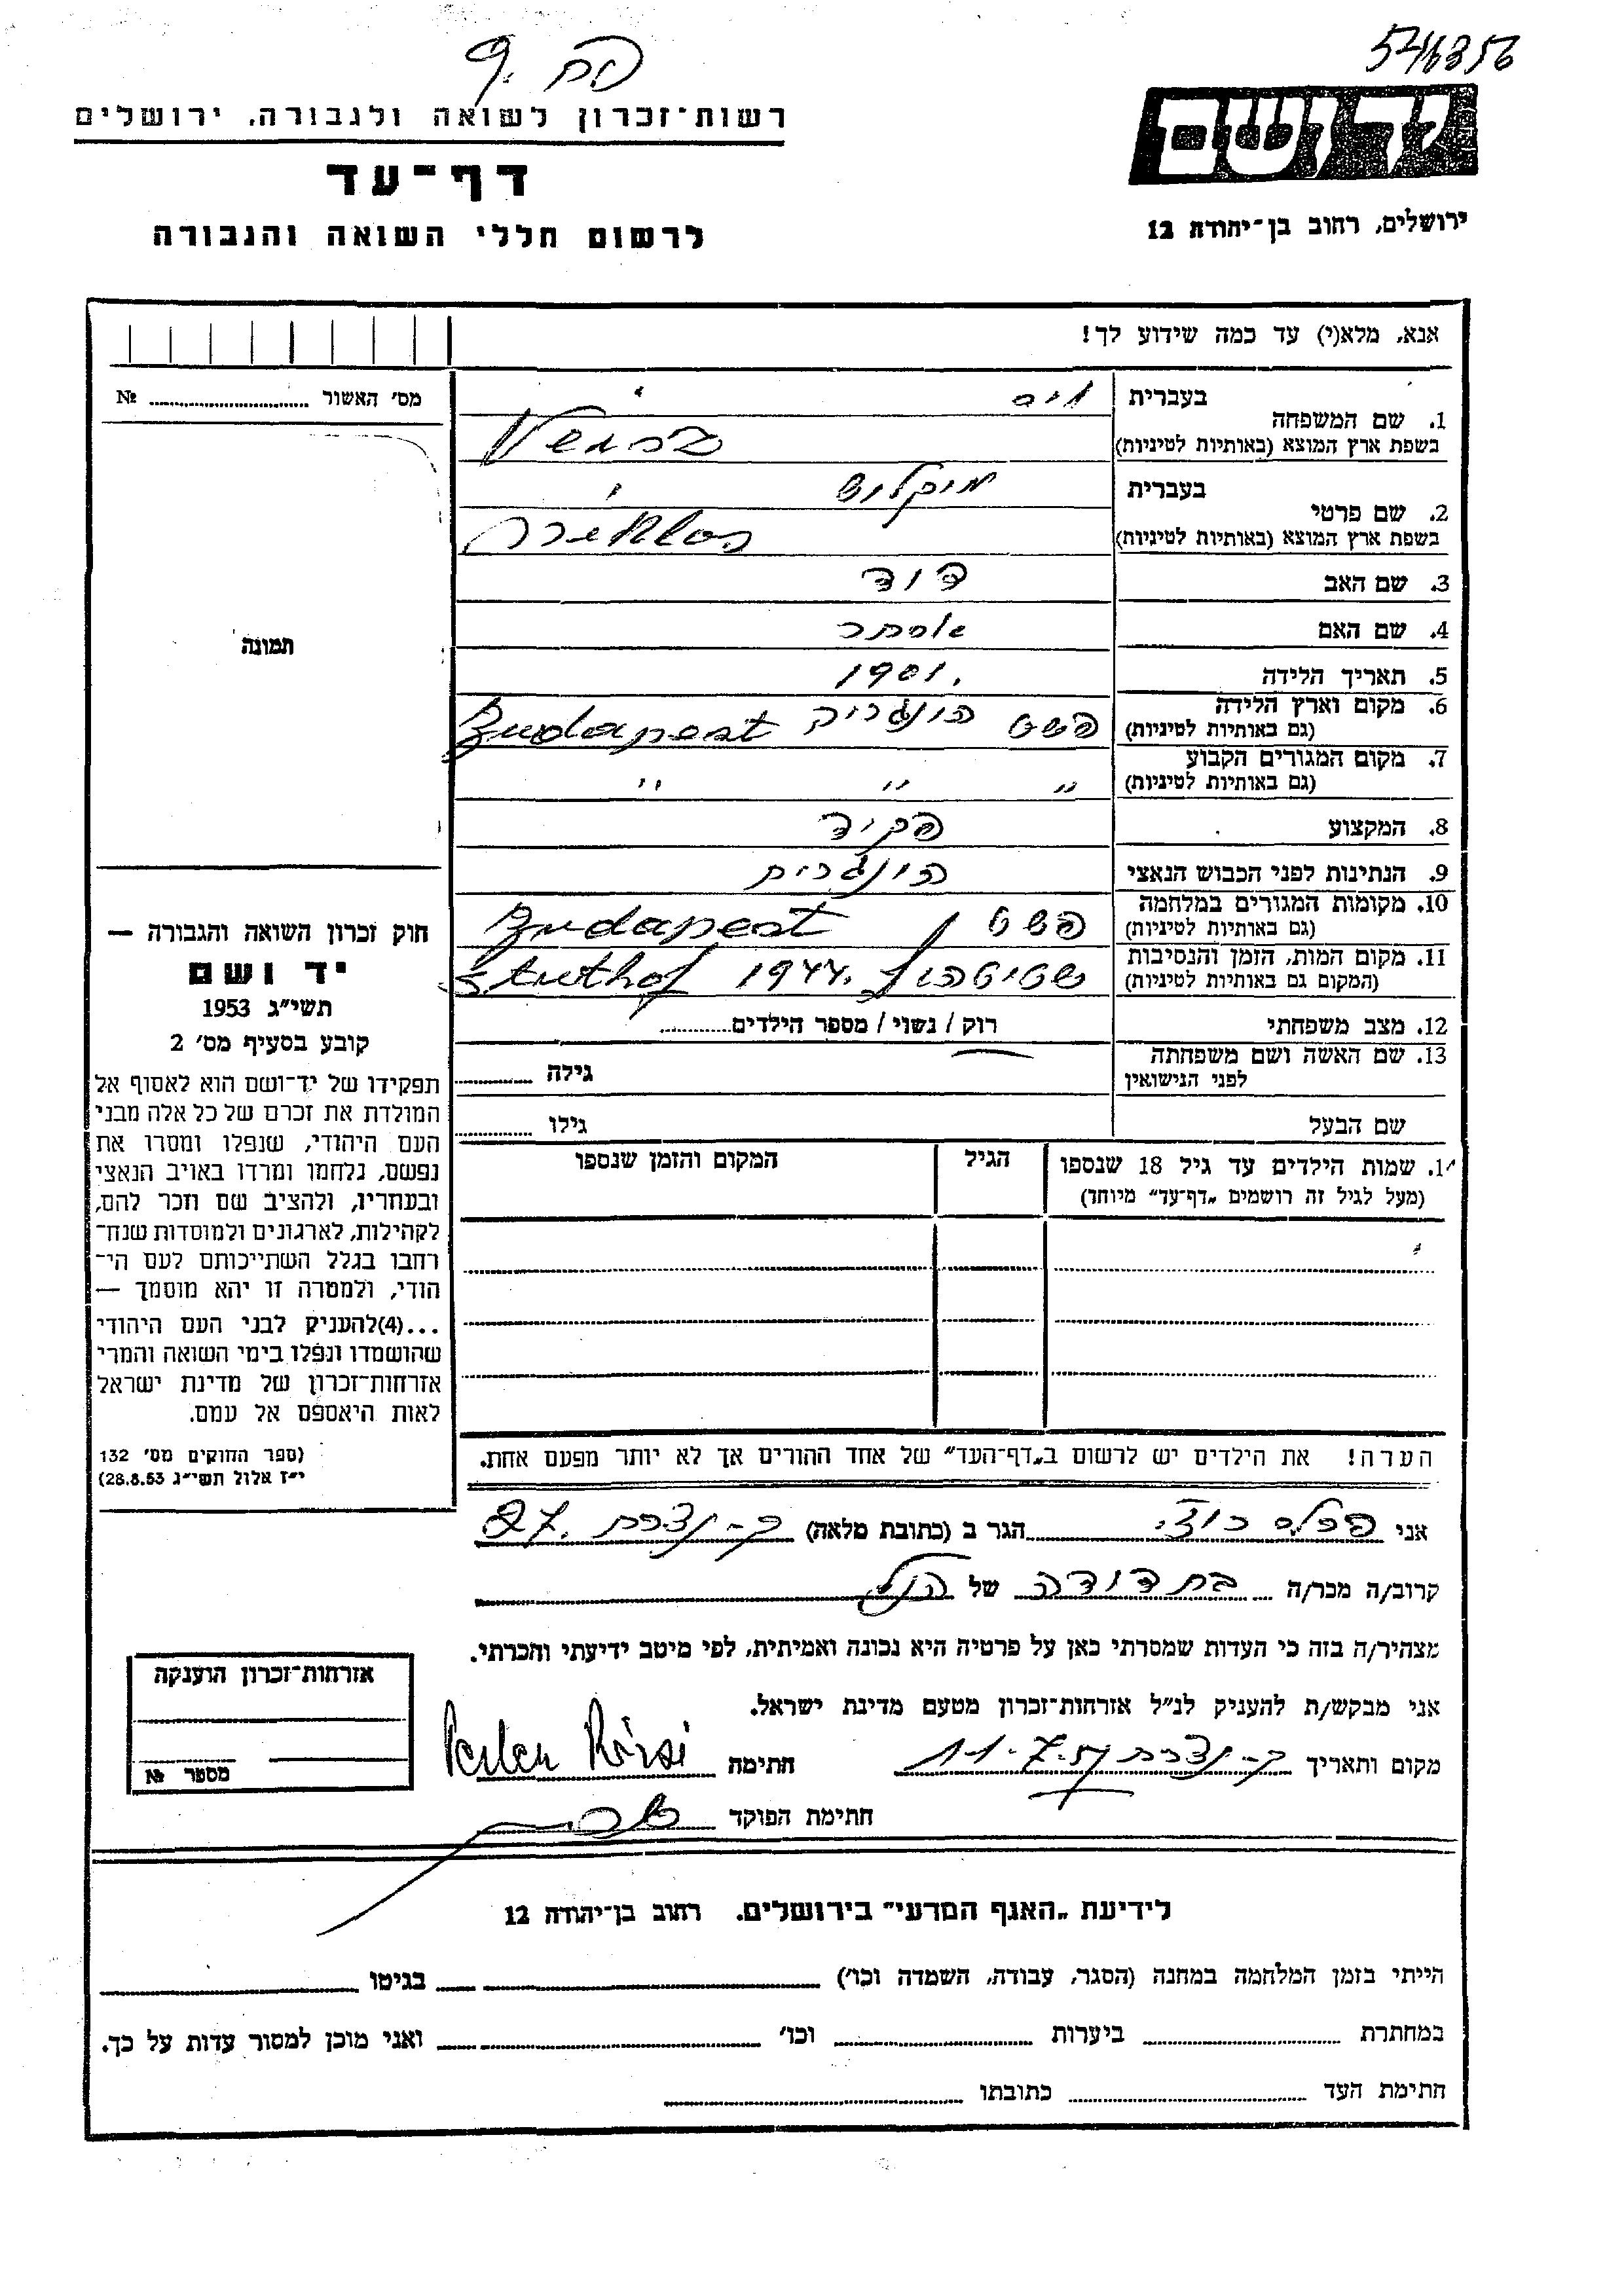 546356
פח. 9
ידושם
ירושלים, רחוב בן־יהודה 12
רשות־זכרון לשואה ולגבורה, ירושלים
דף־עד
לרשום חללי השואה והגבורה
אנא, מלא(י) עד כמה שידוע לך!
מס׳ האשור ........ №
תמונה
חוק זכרון השואה והגבורה —
יד ושם
תשי״ג 1953
קובע בסעיף מס׳ 2
תפקידו של יד־ושם הוא לאסוף אל
המולדת את זכרם של כל אלה מבני
העם היהודי, שנפלו ומסרו את
נפשם, נלחמו ומרדו באויב הנאצי
ובעוזריו, ולהציב שם וזכר להם,
לקהילות, לארגונים ולמוסדות שנח־
רבו בגלל השתייכותם לעם הי־
הודי, ולמטרה זו יהא מוסמך —
...(4)להעניק לבני העם היהודי
שהושמדו ונפלו בימי השואה והמרי
אזרחות־זכרון של מדינת ישראל
לאות היאספם אל עמם.
(ספר החוקים מס׳ 132
י״ז אלול תשי״ג 28.8.53)
1. שם המשפחה
בעברית
בשפת ארץ המוצא (באותיות לטיניות)
2. שם פרטי
בעברית מיקלוש
בשפת ארץ המוצא (באותיות לטיניות) Miklos
3. שם האב דוד
4. שם האם אסתר
5. תאריך הלידה 1901.
6. מקום וארץ הלידה פשט הונגריה Budapest
(גם באותיות לטיניות)
7. מקום המגורים הקבוע
(גם באותיות לטיניות) " " "
8. המקצוע פקיד
9. הנתינות לפני הכבוש הנאצי הונגרית
10. מקומות המגורים במלחמה פשט / Budapest
(גם באותיות לטיניות)
11. מקום המות, הזמן והנסיבות שטוטהוף 1944. Stuthof
(המקום גם באותיות לטיניות)
12. מצב משפחתי רוק / נשוי / מספר הילדים........
13. שם האשה ושם משפחתה
לפני הנישואין גילה ........
שם הבעל גילו ........
14. שמות הילדים עד גיל 18 שנספו
(מעל לגיל זה רושמים „דף־עד״ מיוחד)
הגיל
המקום והזמן שנספו
הערה! את הילדים יש לרשום ב„דף־העד״ של אחד ההורים אך לא יותר מפעם אחת.
אני פרלס רוזי הגר ב (כתובת מלאה) ק-נצרת 97.
קרוב/ה מכר/ה בת דודה של הנ״ל
מצהיר/ה בזה כי העדות שמסרתי כאן על פרטיה היא נכונה ואמיתית, לפי מיטב ידיעתי והכרתי.
אני מבקש/ת להעניק לנ״ל אזרחות־זכרון מטעם מדינת ישראל.
מקום ותאריך ק-נצרת 11.7.57 חתימה
חתימת הפוקד
אזרחות־זכרון הוענקה
מספר №
לידיעת „האגף המדעי״ בירושלים, רחוב בן־יהודה 12
הייתי בזמן המלחמה במחנה (הסגר, עבודה, השמדה וכו׳) בגיטו
במחתרת ביערות וכו׳ ואני מוכן למסור עדות על כך.
חתימת העד כתובתו